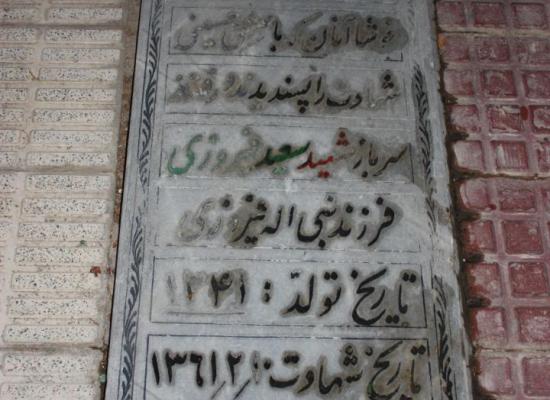 خوشا آنان که با عشق حسینی
شهادت را پسندیدند و رفتند
سرباز شهید سعید فیروزی
فرزند نبی اله فیروزی
تاریخ تولد : ۱۳۴۱
تاریخ شهادت : ۱۳۶۱/۲/